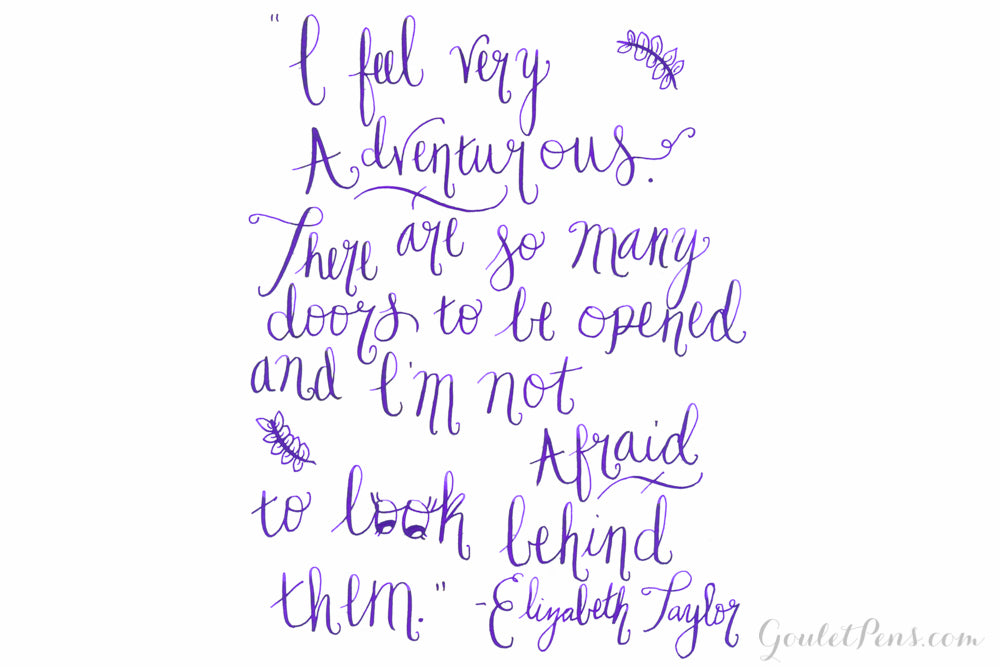 "I feel very
Adventurous.
There are so many
doors to be opened
and I'm not
Afraid
to look behind
them." -Elizabeth Taylor
GouletPens.com